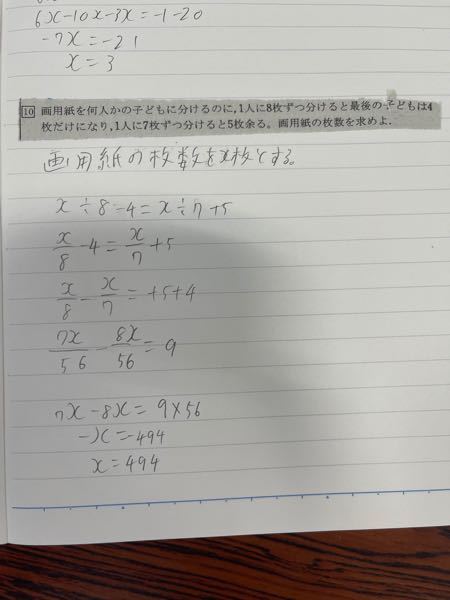 6x-10x-3x=-1-20
-7x=-21
x=3
10 画用紙を何人かの子どもに分けるのに,1人に8枚ずつ分けると最後の子どもは4
枚だけになり,1人に7枚ずつ分けると5枚余る。画用紙の枚数を求めよ.
画用紙の枚数をx枚とする。
x÷8-4=x÷7+5
x/8-4=x/7+5
x/8-x/7=+5+4
7x/56-8x/56=9
7x-8x=9×56
-x=-494
x=494